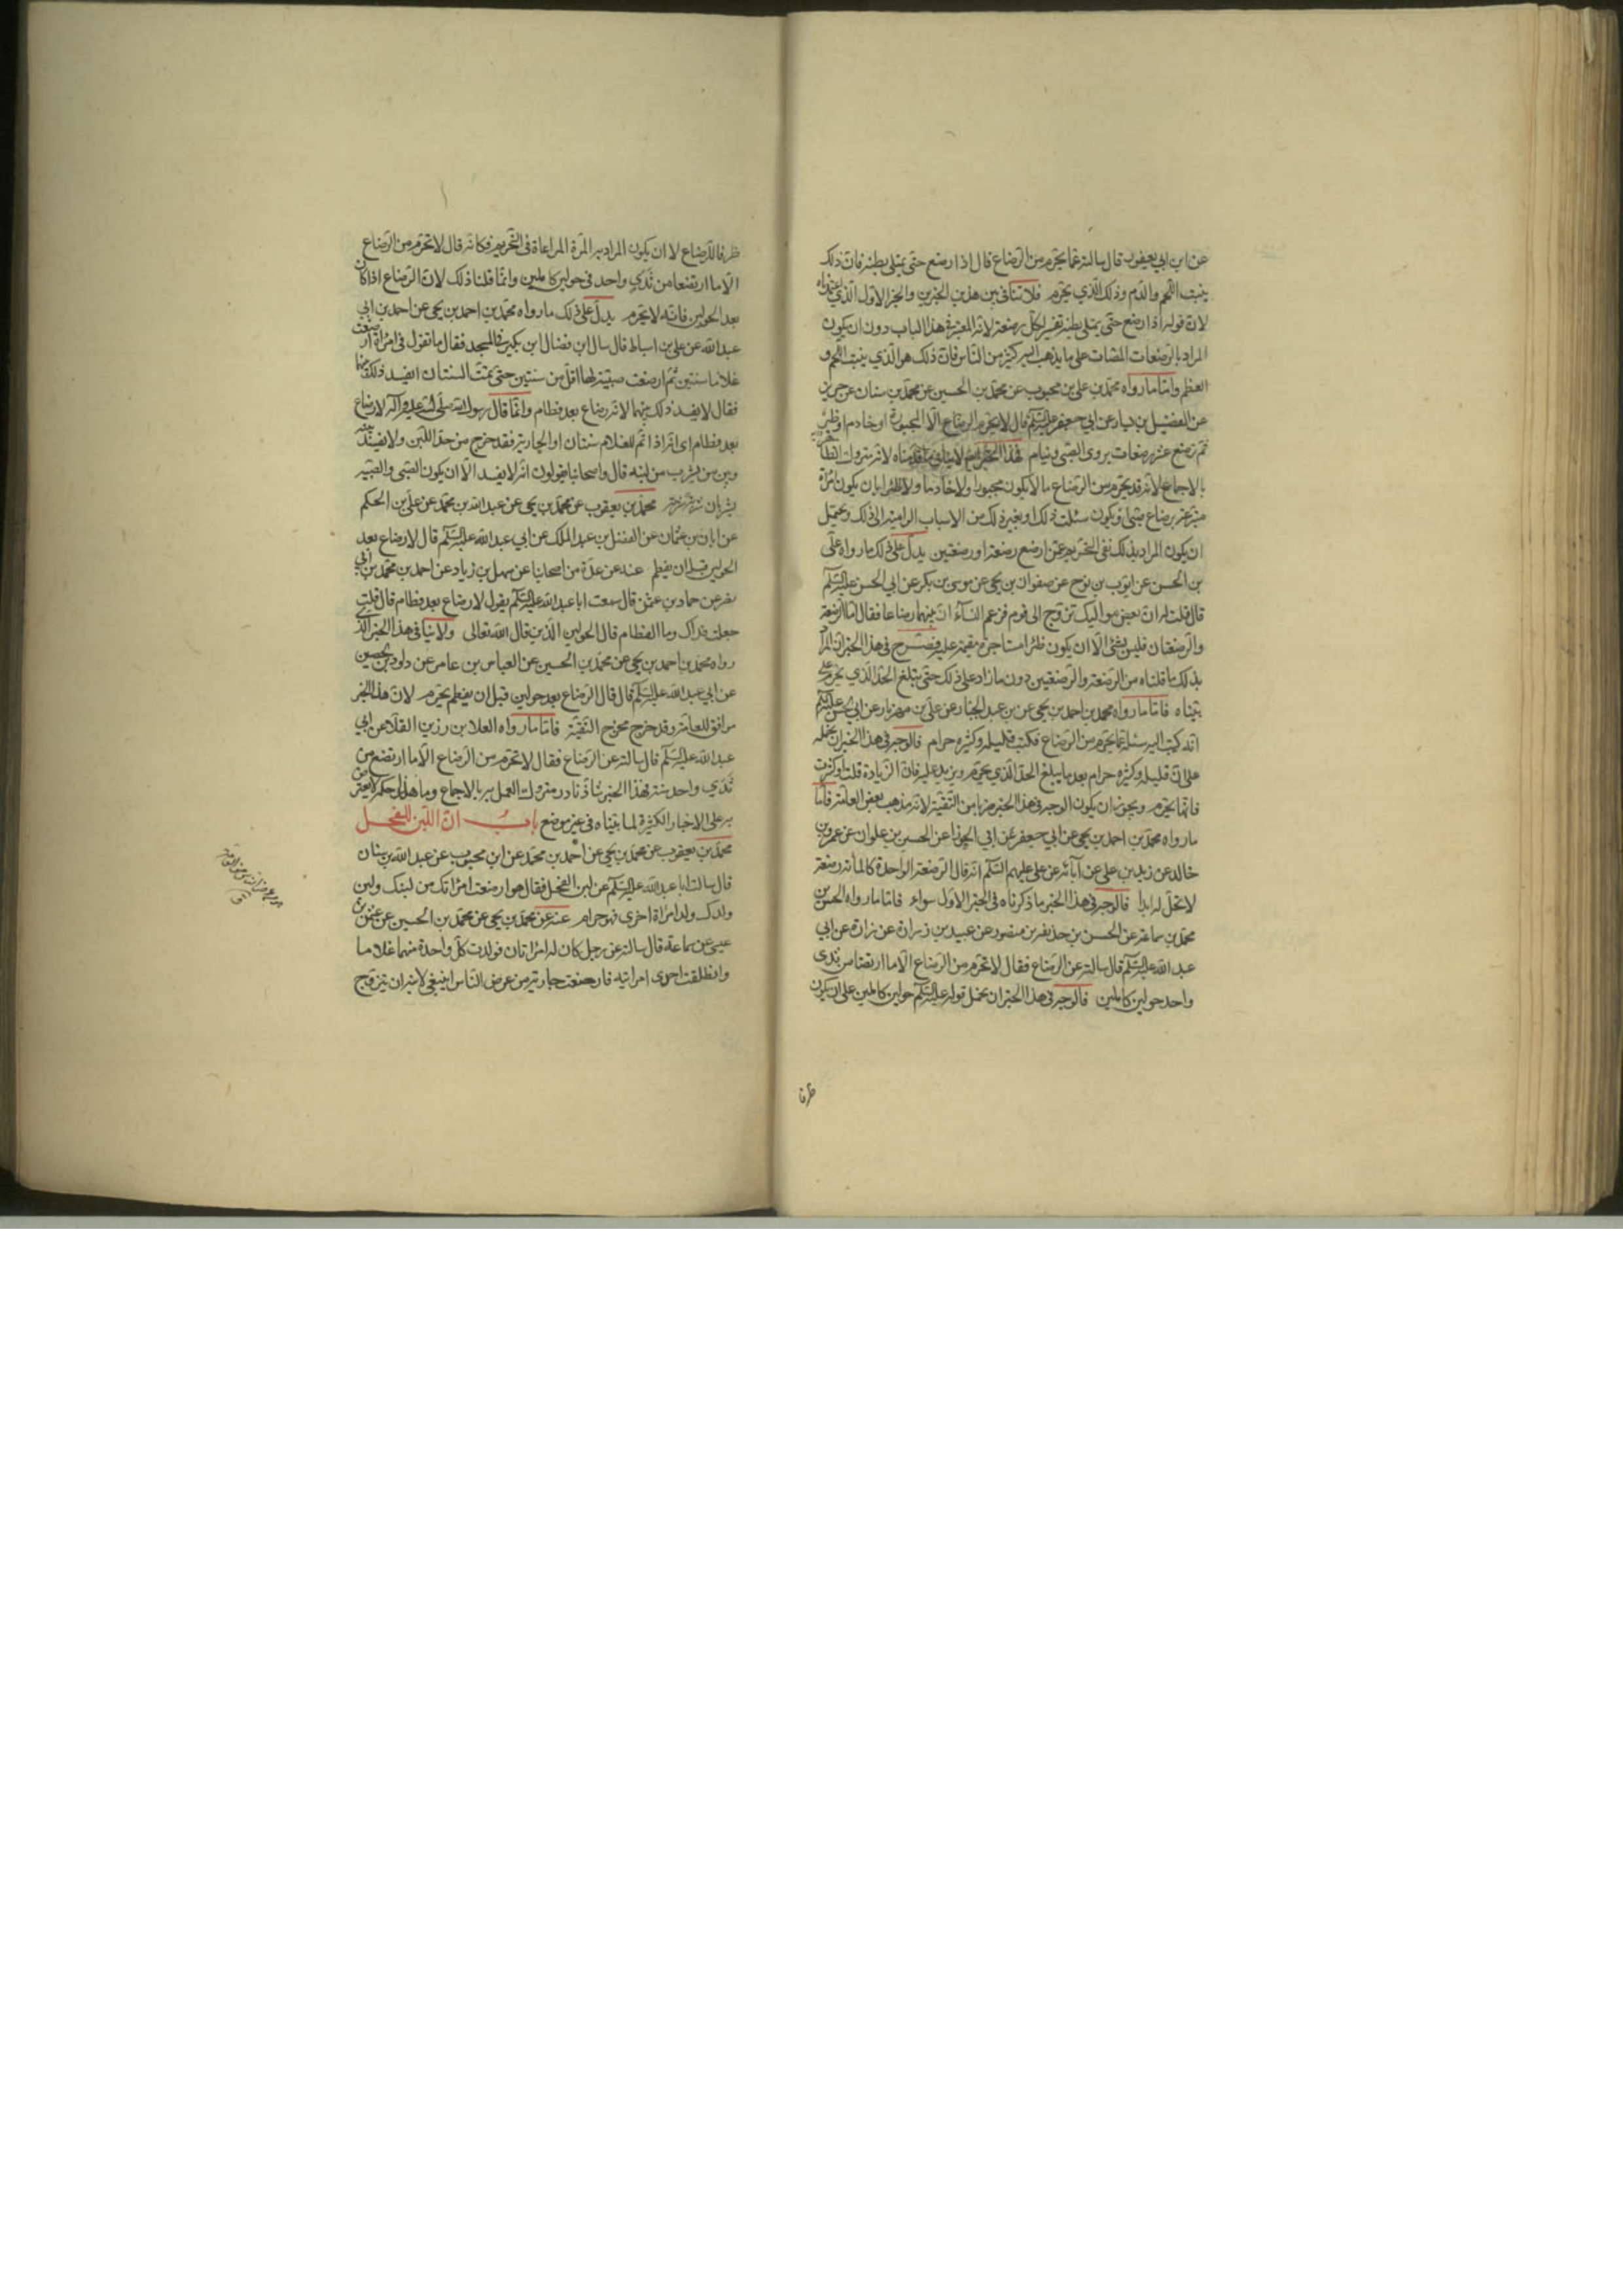 عن ابن ابي يعفور قال سالته عما يحرم من الرضاع قال اذا رضع حتى يمتلى بطنه فان ذلك
ينبت اللحم والدم وذلك الذي يحرم فلا تنافى بين هذين الخبرين والخبر الاول الذي
لان قوله اذا رضع حتى يمتلى بطنه تفسير لكل رضعة لانه المعتبر فى هذا الباب دون ان يكون
المراد بالرضعات المصات على ما يذهب اليه كثير من الناس فان ذلك هو الذي ينبت اللحم و
العظم واما ما رواه محمد بن على بن محبوب عن محمد بن الحسين عن محمد بن سنان عن حريز
عن الفضيل بن يسار عن ابي جعفر عليه السلم قال لا يحرم من الرضاع الا المجبورة او خادم او ظئر
ثم ترضع عشر رضعات يروى الصبى وينام فهذا الخبر لا ينافى ما قدمناه لانه متروك
بالاجماع لانه قد يحرم من الرضاع ما لا يكون مجبورا ولا خادما ولا ظئرا بان يكون امراة
متبرعة برضاع صبى او يكون سئلت ذلك او بغير ذلك من الاسباب الداعية الى ذلك ويحتمل
ان يكون المراد بذلك نفى التحريم عمن ارضع رضعة او رضعتين يدل على ذلك ما رواه على
بن الحسن عن ايوب بن نوح عن صفوان بن يحيى عن موسى بن بكر عن ابي الحسن عليه السلم
قال قلت له ان بعض مواليك تزوج الى قوم فزعم النساء ان بينهما رضاعا فقال اما الرضعة
والرضعتان فليس بشئ الا ان يكون ظئرا مستاجرة مقيمة عليه فصرح فى هذا الخبر ان المراد
بذلك ما قلناه من الرضعة والرضعتين دون ما زاد على ذلك حتى يبلغ الحد الذي يحرم على
بيناه فاما ما رواه محمد بن احمد بن يحيى عن بن عبد الجبار عن على بن مهزيار عن ابي الحسن عليه السلم
انه كتب اليه يسئله عما يحرم من الرضاع فكتب قليله وكثيره حرام فالوجه فى هذا الخبر ان نحمله
على ان قليله وكثيره حرام بعد ما يبلغ الحد الذي يحرم ويزيد عليه فان الزيادة قلت او كثرت
فانها تحرم ويجوز ان يكون الوجه فى هذا الخبر ضربا من التقية لانه مذهب بعض العامة فاما
ما رواه محمد بن احمد بن يحيى عن ابي جعفر عن ابي الجوزا عن الحسين بن علوان عن عمرو بن
خالد عن زيد بن على عن آبائه عن على عليهم السلم انه قال الرضعة الواحدة كالمأة رضعة
لا تحل له ابدا فالوجه فى هذا الخبر ما ذكرناه فى الخبر الاول سواء فاما ما رواه الحسن بن
محمد بن سماعة عن الحسن بن حذيفة بن منصور عن عبيد بن زرارة عن زرارة عن ابي
عبد الله عليه السلم قال سالته عن الرضاع فقال لا تحرم من الرضاع الا ما ارتضعا من ثدى
واحد حولين كاملين فالوجه فى هذا الخبر ان نحمل قوله عليه السلم حولين كاملين على ان يكون
ظرفا
ظرفا للرضاع لا ان يكون المراد به المدة المراعاة فى التحريم فكانه قال لا تحرم من الرضاع
الا ما ارتضعا من ثدي واحد فى حولين كاملين وانما قلنا ذلك لان الرضاع اذا كان
بعد الحولين فانه لا يحرم يدل على ذلك ما رواه محمد بن احمد بن يحيى عن احمد بن ابي
عبد الله عن على بن اسباط قال سال ابن فضال ابن بكير فى المسجد فقال ما تقول فى امراة ارضعت
غلاما سنتين ثم ارضعت صبية لها اقل من سنتين حتى تمت السنتان ايفسد ذلك بينهما
فقال لا يفسد ذلك بينهما لانه رضاع بعد فطام وانما قال رسول الله صلى الله عليه وآله لا رضاع
بعد فطام اى انه اذا تم للغلام سنتان او الجارية فقد خرج من حد اللبن ولا يفسد بينه
وبين من يشرب من لبنه قال واصحابنا يقولون انه لا يفسد الا ان يكون الصبى والصبية
يشربان شربة شربة محمد بن يعقوب عن محمد بن يحيى عن عبد الله بن محمد عن على بن الحكم
عن ابان بن عثمان عن الفضل بن عبد الملك عن ابي عبد الله عليه السلم قال لا رضاع بعد
الحولين قبل ان يفطم عنه عن عدة من اصحابنا عن سهل بن زياد عن احمد بن محمد بن ابي
نصر عن حماد بن عثمن قال سمعت ابا عبد الله عليه السلم يقول لا رضاع بعد فطام قال قلت
جعلت فداك وما الفطام قال الحولين الذين قال الله تعالى ولا ينافى هذا الخبر الذي
رواه محمد بن احمد بن يحيى عن محمد بن الحسين عن العباس بن عامر عن داود بن الحصين
عن ابي عبد الله عليه السلم قال قال الرضاع بعد حولين قبل ان يفطم يحرم لان هذا الخبر
موافق للعامة وقد خرج مخرج التقية فاما ما رواه العلا بن رزين القلا عن ابي
عبد الله عليه السلم قال سالته عن الرضاع فقال لا تحرم من الرضاع الا ما ارتضع من
ثدي واحد سنة فهذا الخبر شاذ نادر متروك العمل به بالاجماع وما هذا حكمه لا يعترض
به على الاخبار الكثيرة لما بيناه فى غير موضع باب ان اللبن للفحل
محمد بن يعقوب عن محمد بن يحيى عن احمد بن محمد عن ابن محبوب عن عبد الله بن سنان
قال سالت ابا عبد الله عليه السلم عن لبن الفحل فقال هو ارضعت امراتك من لبنك ولبن
ولدك ولد امراة اخرى فهو حرام عنه عن محمد بن يحيى عن محمد بن الحسين عن عثمن بن
عيسى عن سماعة قال سالته عن رجل كان له امراتان فولدت كل واحدة منهما غلاما
وانطلقت احدى امراتيه فارضعت جارية من عرض الناس اينبغى لابنه ان يتزوج